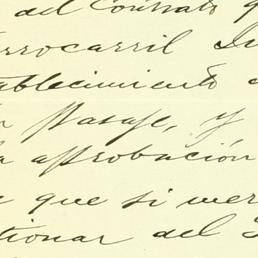 del Contrato
rrocarril
tablecimiento
pasaje, y
la aprobación
que si
tionar del